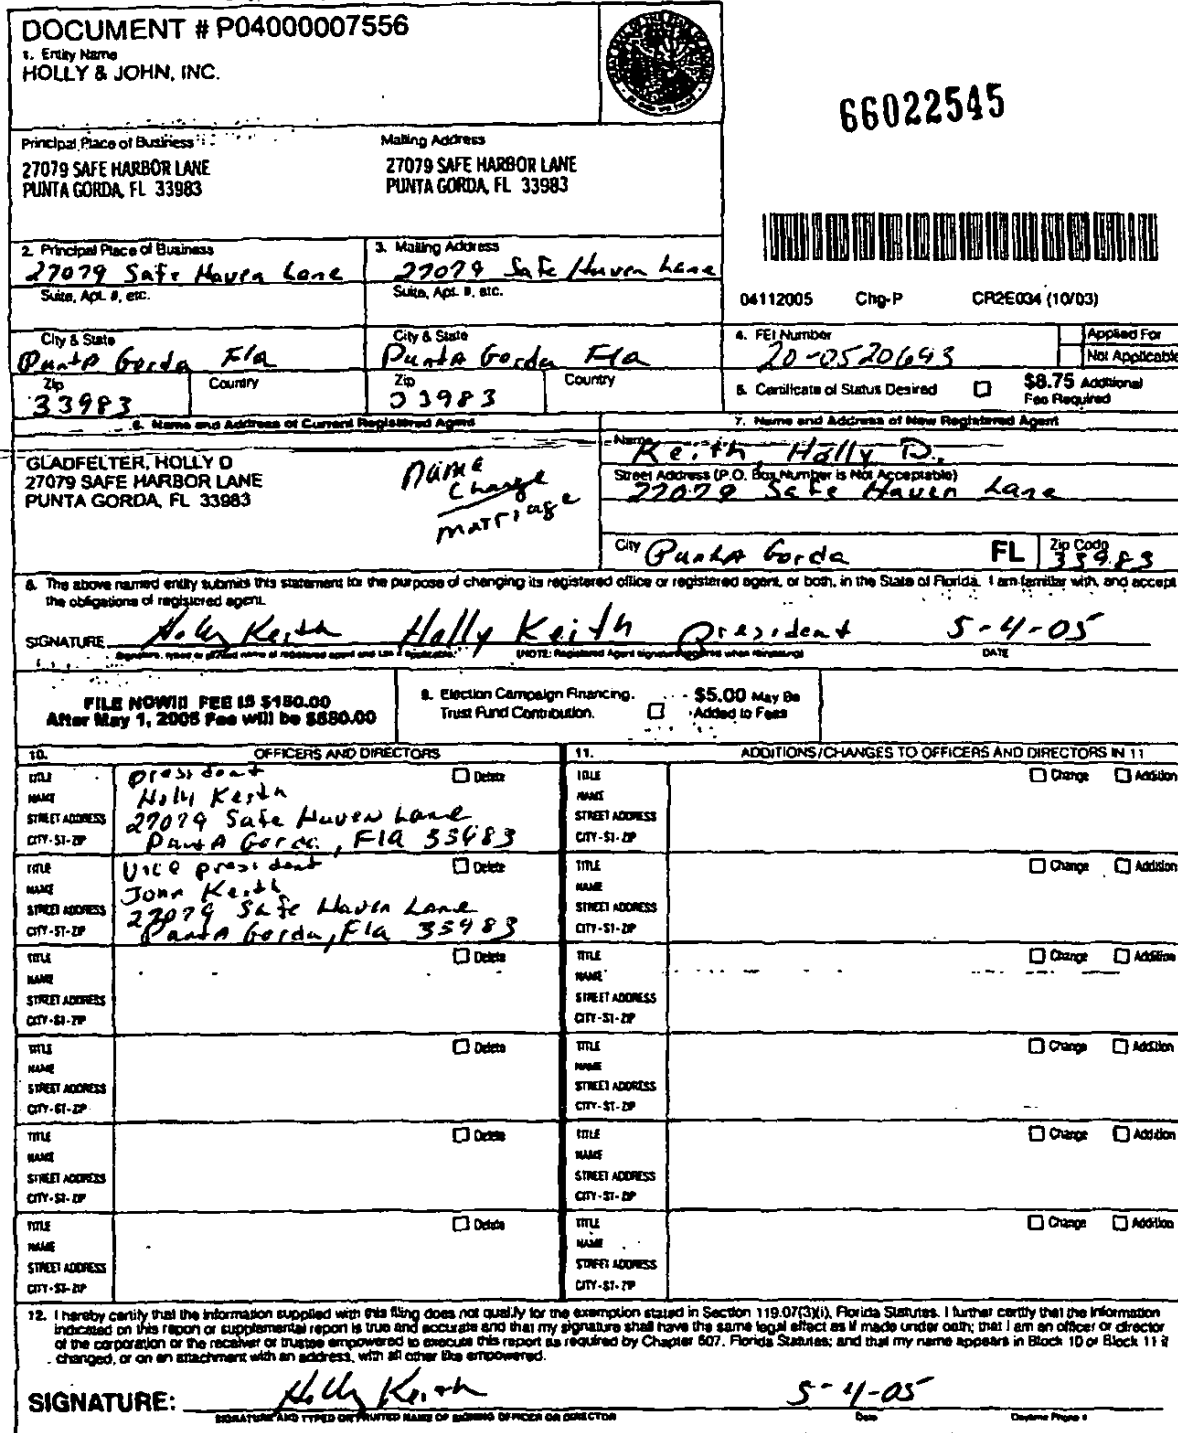 DOCUMENT # P04000007556
1. Entity Name
HOLLY & JOHN, INC.
66022545
Principal Place of Business
Mailing Address
27079 SAFE HARBOR LANE
PUNTA GORDA, FL 33983
27079 SAFE HARBOR LANE
PUNTA GORDA, FL 33983
2. Principal Place of Business
27079 Safe Haven Lane
3. Mailing Address
27079 Safe Haven Lane
Suite, Apt. #, etc.
Suite, Apt. #, etc.
04112005 Chg-P CR2E034 (10/03)
City & State
Punta Gorda Fla
City & State
Punta Gorda Fla
4. FEI Number
20-0520693
Applied For
Not Applicable
Zip
33983
Country
Zip
33983
Country
5. Certificate of Status Desired
$8.75 Additional
Fee Required
6. Name and Address of Current Registered Agent
7. Name and Address of New Registered Agent
GLADFELTER, HOLLY D
27079 SAFE HARBOR LANE
PUNTA GORDA, FL 33983
Name
Change
marriage
Name
Keith, Holly D.
Street Address (P.O. Box Number is Not Acceptable)
27079 Safe Haven Lane
City Punta Gorda FL Zip Code 33983
8. The above named entity submits this statement for the purpose of changing its registered office or registered agent, or both, in the State of Florida. I am familiar with, and accept
the obligations of registered agent.
SIGNATURE Holly Keith Holly Keith President 5-4-05
Signature, typed or printed name of registered agent and title if applicable. (NOTE: Registered Agent signature required when reinstating) DATE
FILE NOW!!! FEE IS $150.00
After May 1, 2005 Fee will be $550.00
9. Election Campaign Financing
Trust Fund Contribution.
$5.00 May Be
Added to Fees
10. OFFICERS AND DIRECTORS
11. ADDITIONS/CHANGES TO OFFICERS AND DIRECTORS IN 11
TITLE President Delete
NAME Holly Keith
STREET ADDRESS 27079 Safe Haven Lane
CITY-ST-ZIP Punta Gorda, Fla 33983
TITLE Change Addition
NAME
STREET ADDRESS
CITY-ST-ZIP
TITLE Vice president Delete
NAME John Keith
STREET ADDRESS 27079 Safe Haven Lane
CITY-ST-ZIP Punta Gorda, Fla 33983
TITLE Change Addition
NAME
STREET ADDRESS
CITY-ST-ZIP
TITLE Delete
NAME
STREET ADDRESS
CITY-ST-ZIP
TITLE Change Addition
NAME
STREET ADDRESS
CITY-ST-ZIP
TITLE Delete
NAME
STREET ADDRESS
CITY-ST-ZIP
TITLE Change Addition
NAME
STREET ADDRESS
CITY-ST-ZIP
TITLE Delete
NAME
STREET ADDRESS
CITY-ST-ZIP
TITLE Change Addition
NAME
STREET ADDRESS
CITY-ST-ZIP
TITLE Delete
NAME
STREET ADDRESS
CITY-ST-ZIP
TITLE Change Addition
NAME
STREET ADDRESS
CITY-ST-ZIP
12. I hereby certify that the information supplied with this filing does not qualify for the exemption stated in Section 119.07(3)(i), Florida Statutes. I further certify that the information
indicated on this report or supplemental report is true and accurate and that my signature shall have the same legal effect as if made under oath; that I am an officer or director
of the corporation or the receiver or trustee empowered to execute this report as required by Chapter 607, Florida Statutes; and that my name appears in Block 10 or Block 11 if
changed, or on an attachment with an address, with all other like empowered.
SIGNATURE: Holly Keith 5-4-05
SIGNATURE AND TYPED OR PRINTED NAME OF SIGNING OFFICER OR DIRECTOR Date Daytime Phone #